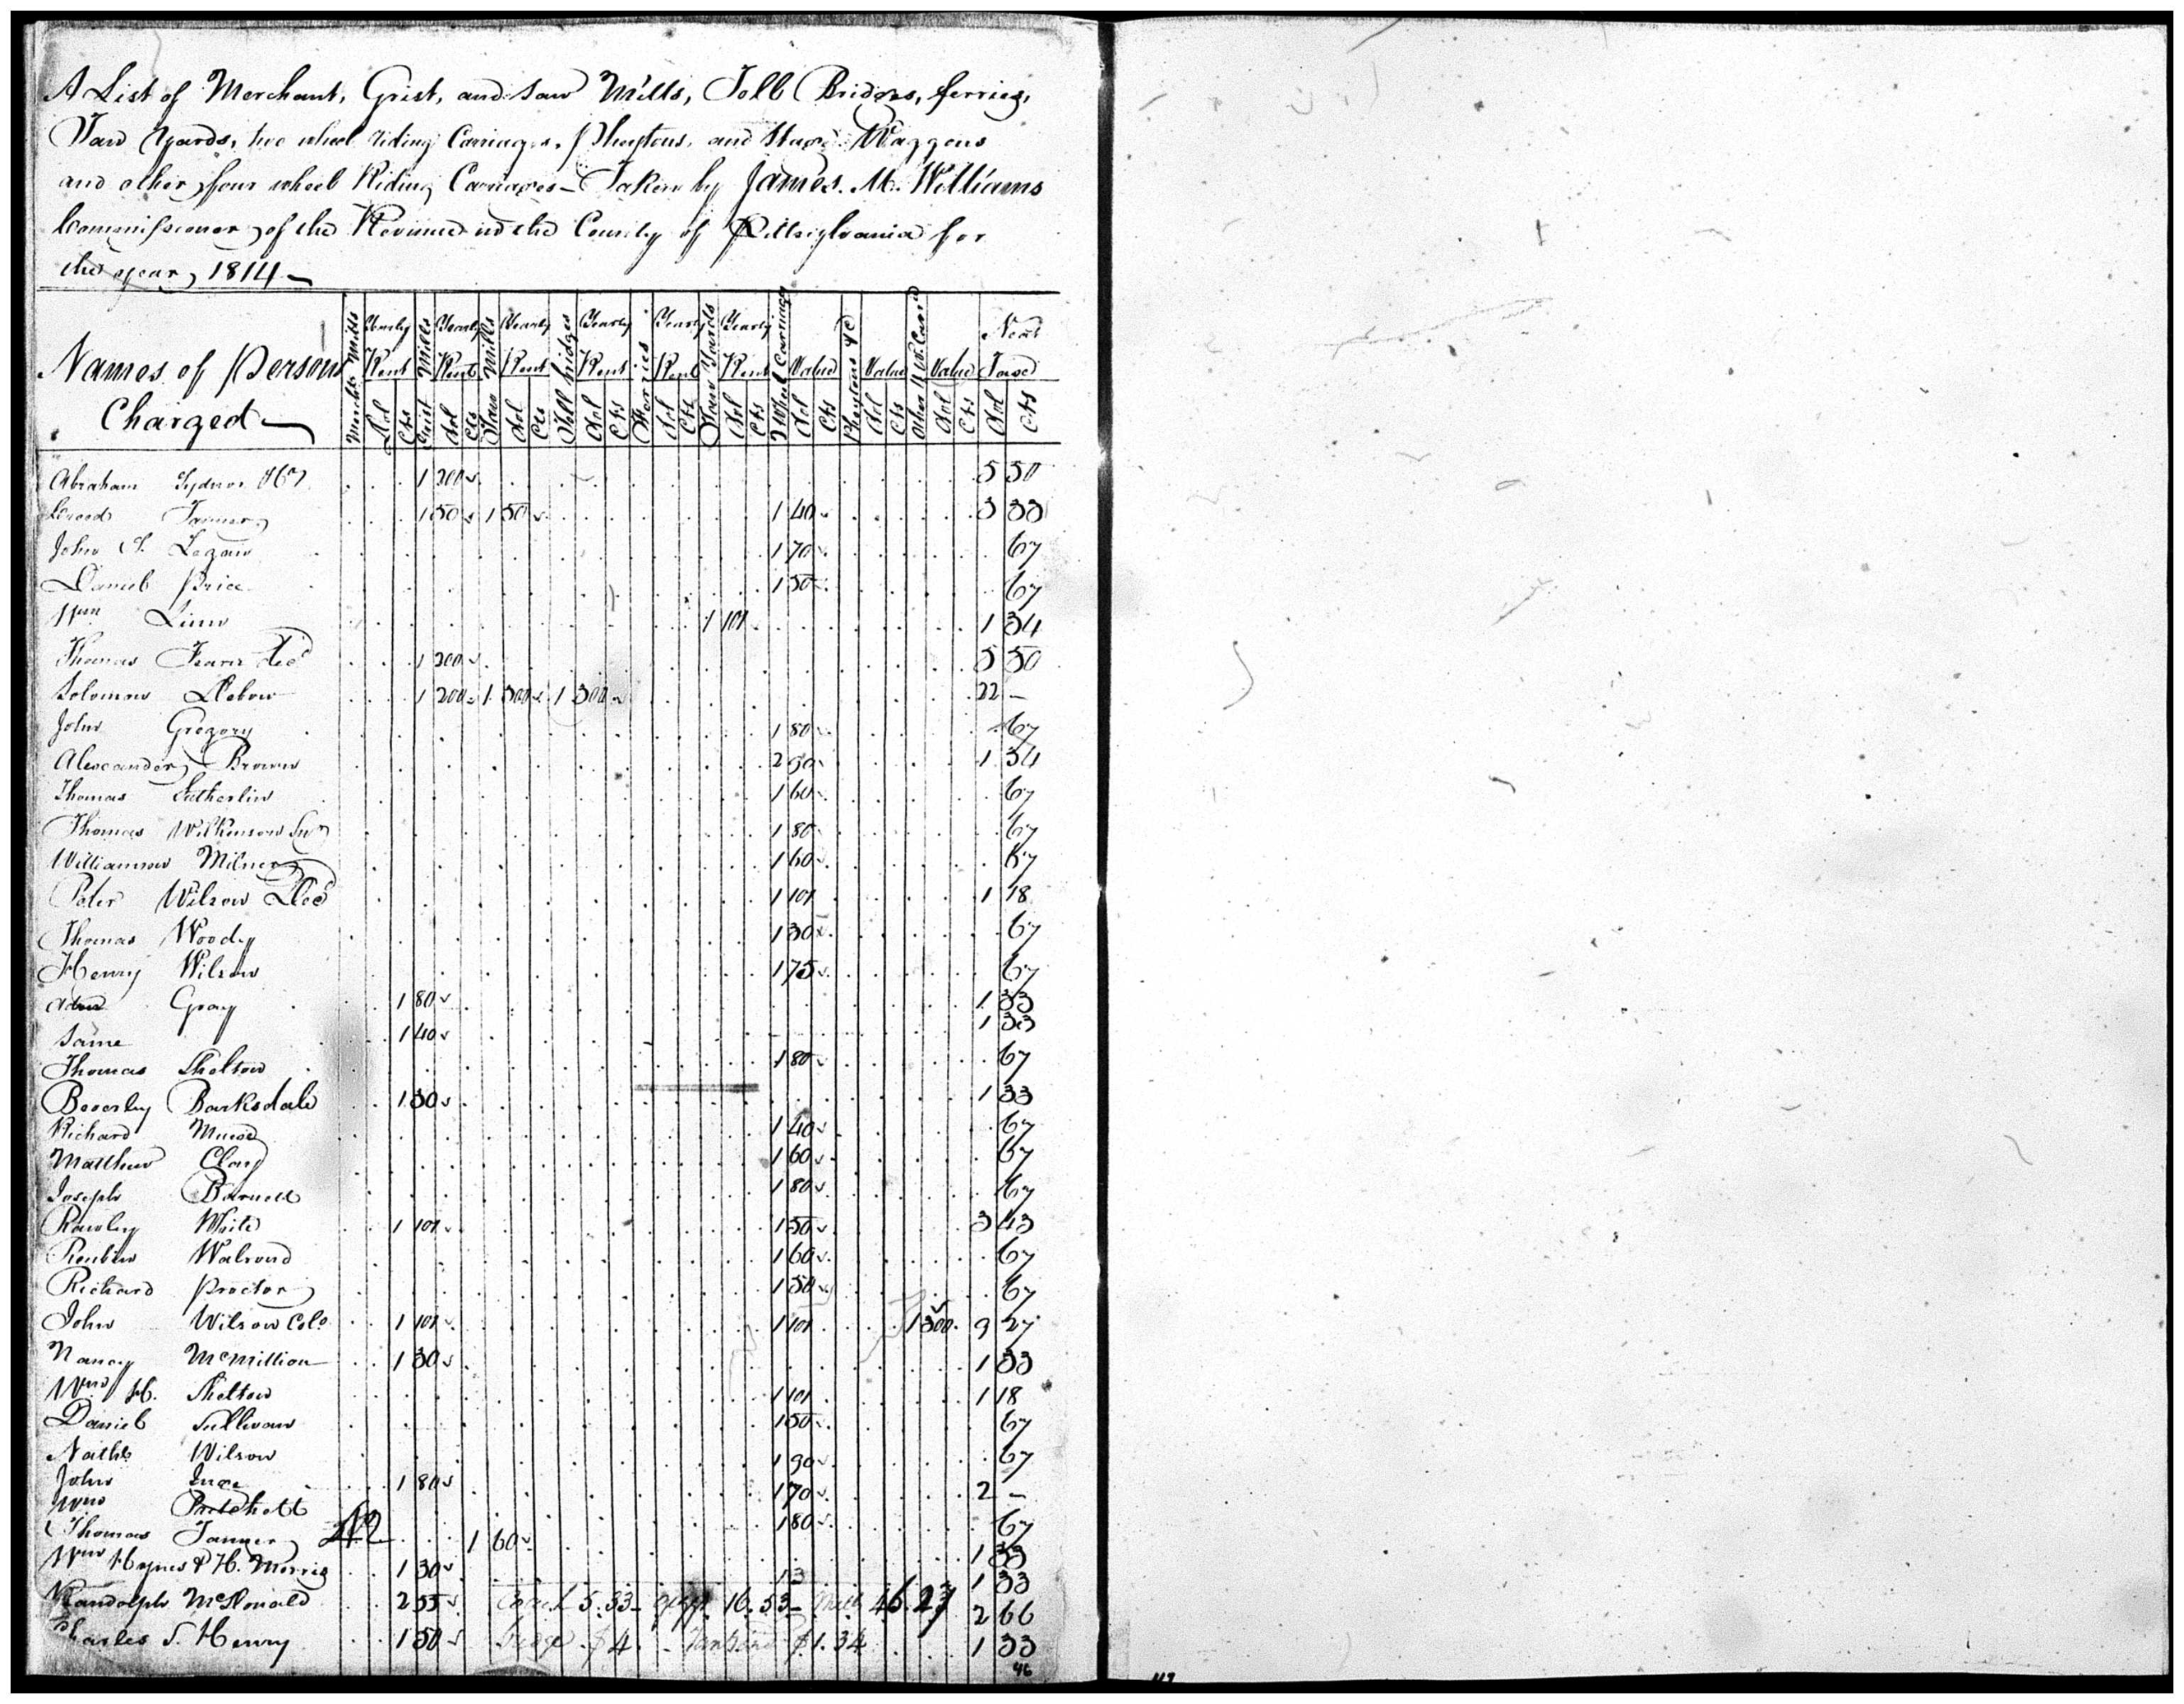 A List of Merchant, Grist, and Saw Mills, Toll Bridges, ferries,
Tan Yards, two wheel riding Carriages, Pheytons, and Stage Waggons
and other four wheel Riding Carriages – Taken by James. M. Williams
Commissioner of the Revenue in the County of Pittsylvania for
the year, 1814 –
Names of Persons Charged
Mercht Mills Yearly Rent Dol Cts Grist Mills Yearly Rent Dol Cts Saw Mills Yearly Rent Dol Cts Toll bridges Yearly Rent Dol Cts Ferries Yearly Rent Dol Cts Tan Yards Yearly Rent Dol Cts 2 Wheel Carriages Value Dol Cts Pheytons &c Value Dol Cts Other 4 W. Carr Value Dol Cts Next Taxed Dol Cts
Abraham Sydnor 1 200 5 50
Creed Tanner 1 50 1 50 1 40 3 33
John S. Logan 1 70 67
Daniel Price 1 50 67
Wm Linn 1 101 1 34
Thomas Fearn Decd 1 200 5 50
Solomon Debow 1 200 1 300 1 300 22 –
John Gregory 1 80 67
Alexander Brown 2 90 1 34
Thomas Sutherlin 1 60 67
Thomas Wilkinson Snr 1 80 67
Williamson Milner 1 60 67
Peter Wilson Decd 1 101 1 18
Thomas Woody 1 30 67
Henry Wilson 1 75 67
Gray 1 80 1 33
Same 1 40 1 33
Thomas Shelton 1 80 67
Beverley Barksdale 1 30 1 33
Richard Muse 1 40 67
Matthew Clay 1 60 67
Joseph Barnett 1 80 67
Rawley White 1 101 1 50 3 43
Reubin Walrond 1 60 67
Richard Proctor 1 50 67
John Wilson Colo 1 101 1 101 1 300 9 27
Nancy McMillion 1 30 1 33
Wm H. Shelton 1 101 1 18
Daniel Sullivan 1 50 67
Nathl Wilson 1 90 67
John Inge 1 80 1 70 2 –
Wm Pritchett 1 80 67
Thomas Tanner 1 60 1 33
Wm Haynes & H. Morris 1 30 1 33
Randolph McDonald 2 55 5.33 16.53 46.27 2 66
Charles S. Henry 1 50 bridge $4. $1.34 1 33
46